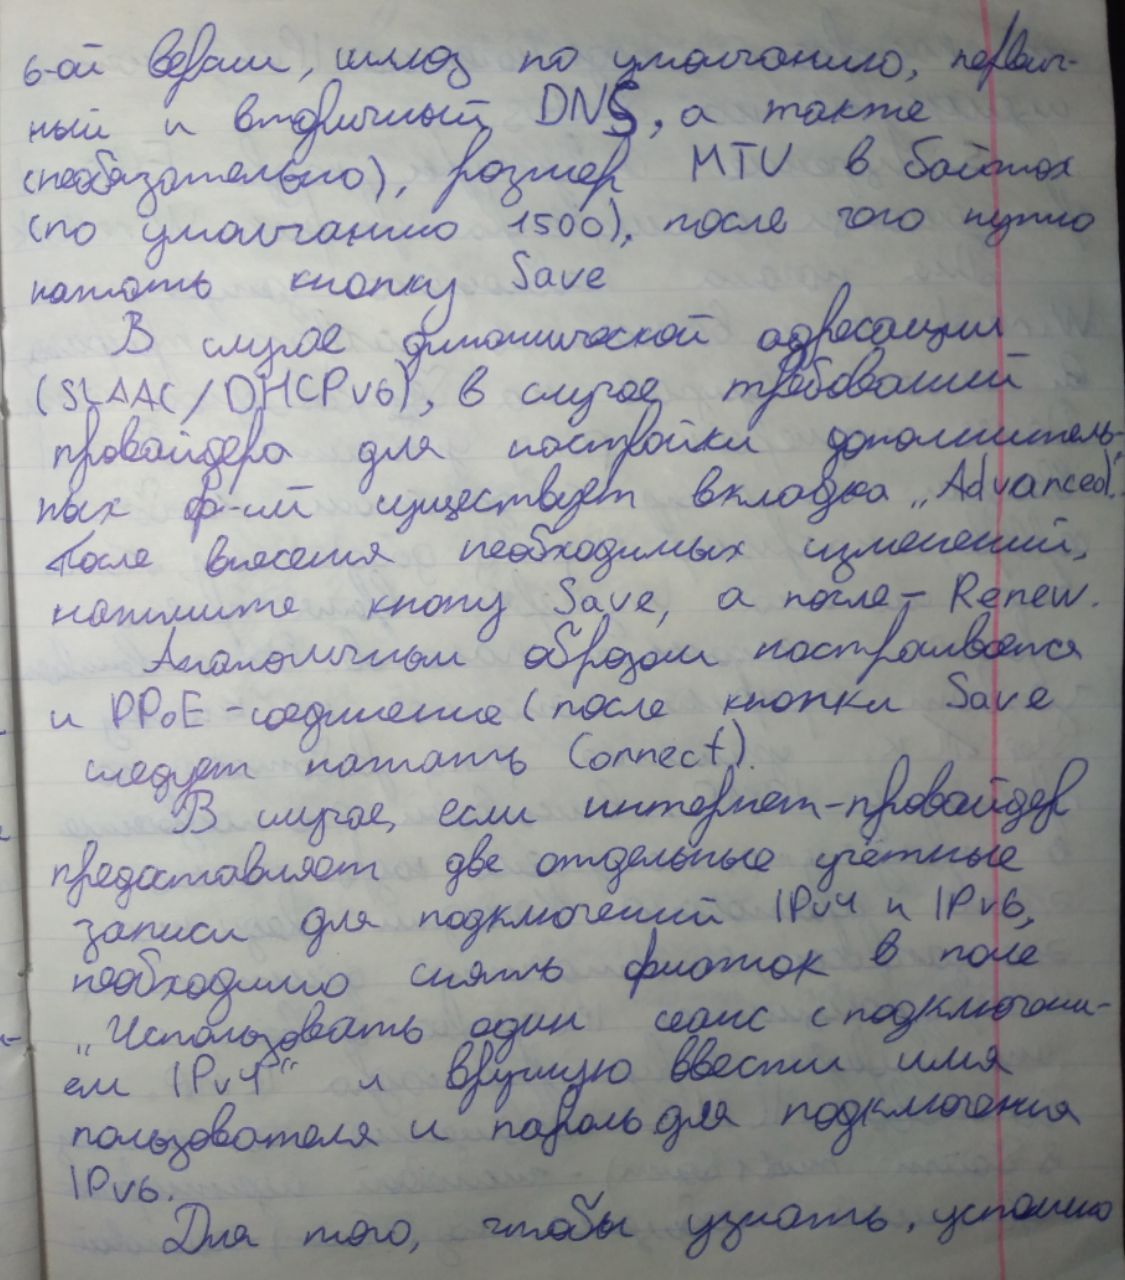 6-ой версии, шлюз по умолчанию, первич-
ный и вторичный DNS, а также
(необязательно), размер MTU в байтах
(по умолчанию 1500), после чего нужно
нажать кнопку Save
В случае динамической адресации
(SLAAC/DHCPv6), в случае требований
провайдера для настройки дополнитель-
ных ф-ий существует вкладка „Advanced".
После внесения необходимых изменений,
нажмите кнопку Save, а после – Renew.
Аналогичным образом настраивается
и PPoE-соединение (после кнопки Save
следует нажать Connect).
В случае, если интернет-провайдер
предоставляет две отдельные учётные
записи для подключений IPv4 и IPv6,
необходимо снять флажок в поле
„Использовать один сеанс с подключени-
ем IPv4" и вручную ввести имя
пользователя и пароль для подключения
IPv6.
Для того, чтобы узнать, успешно